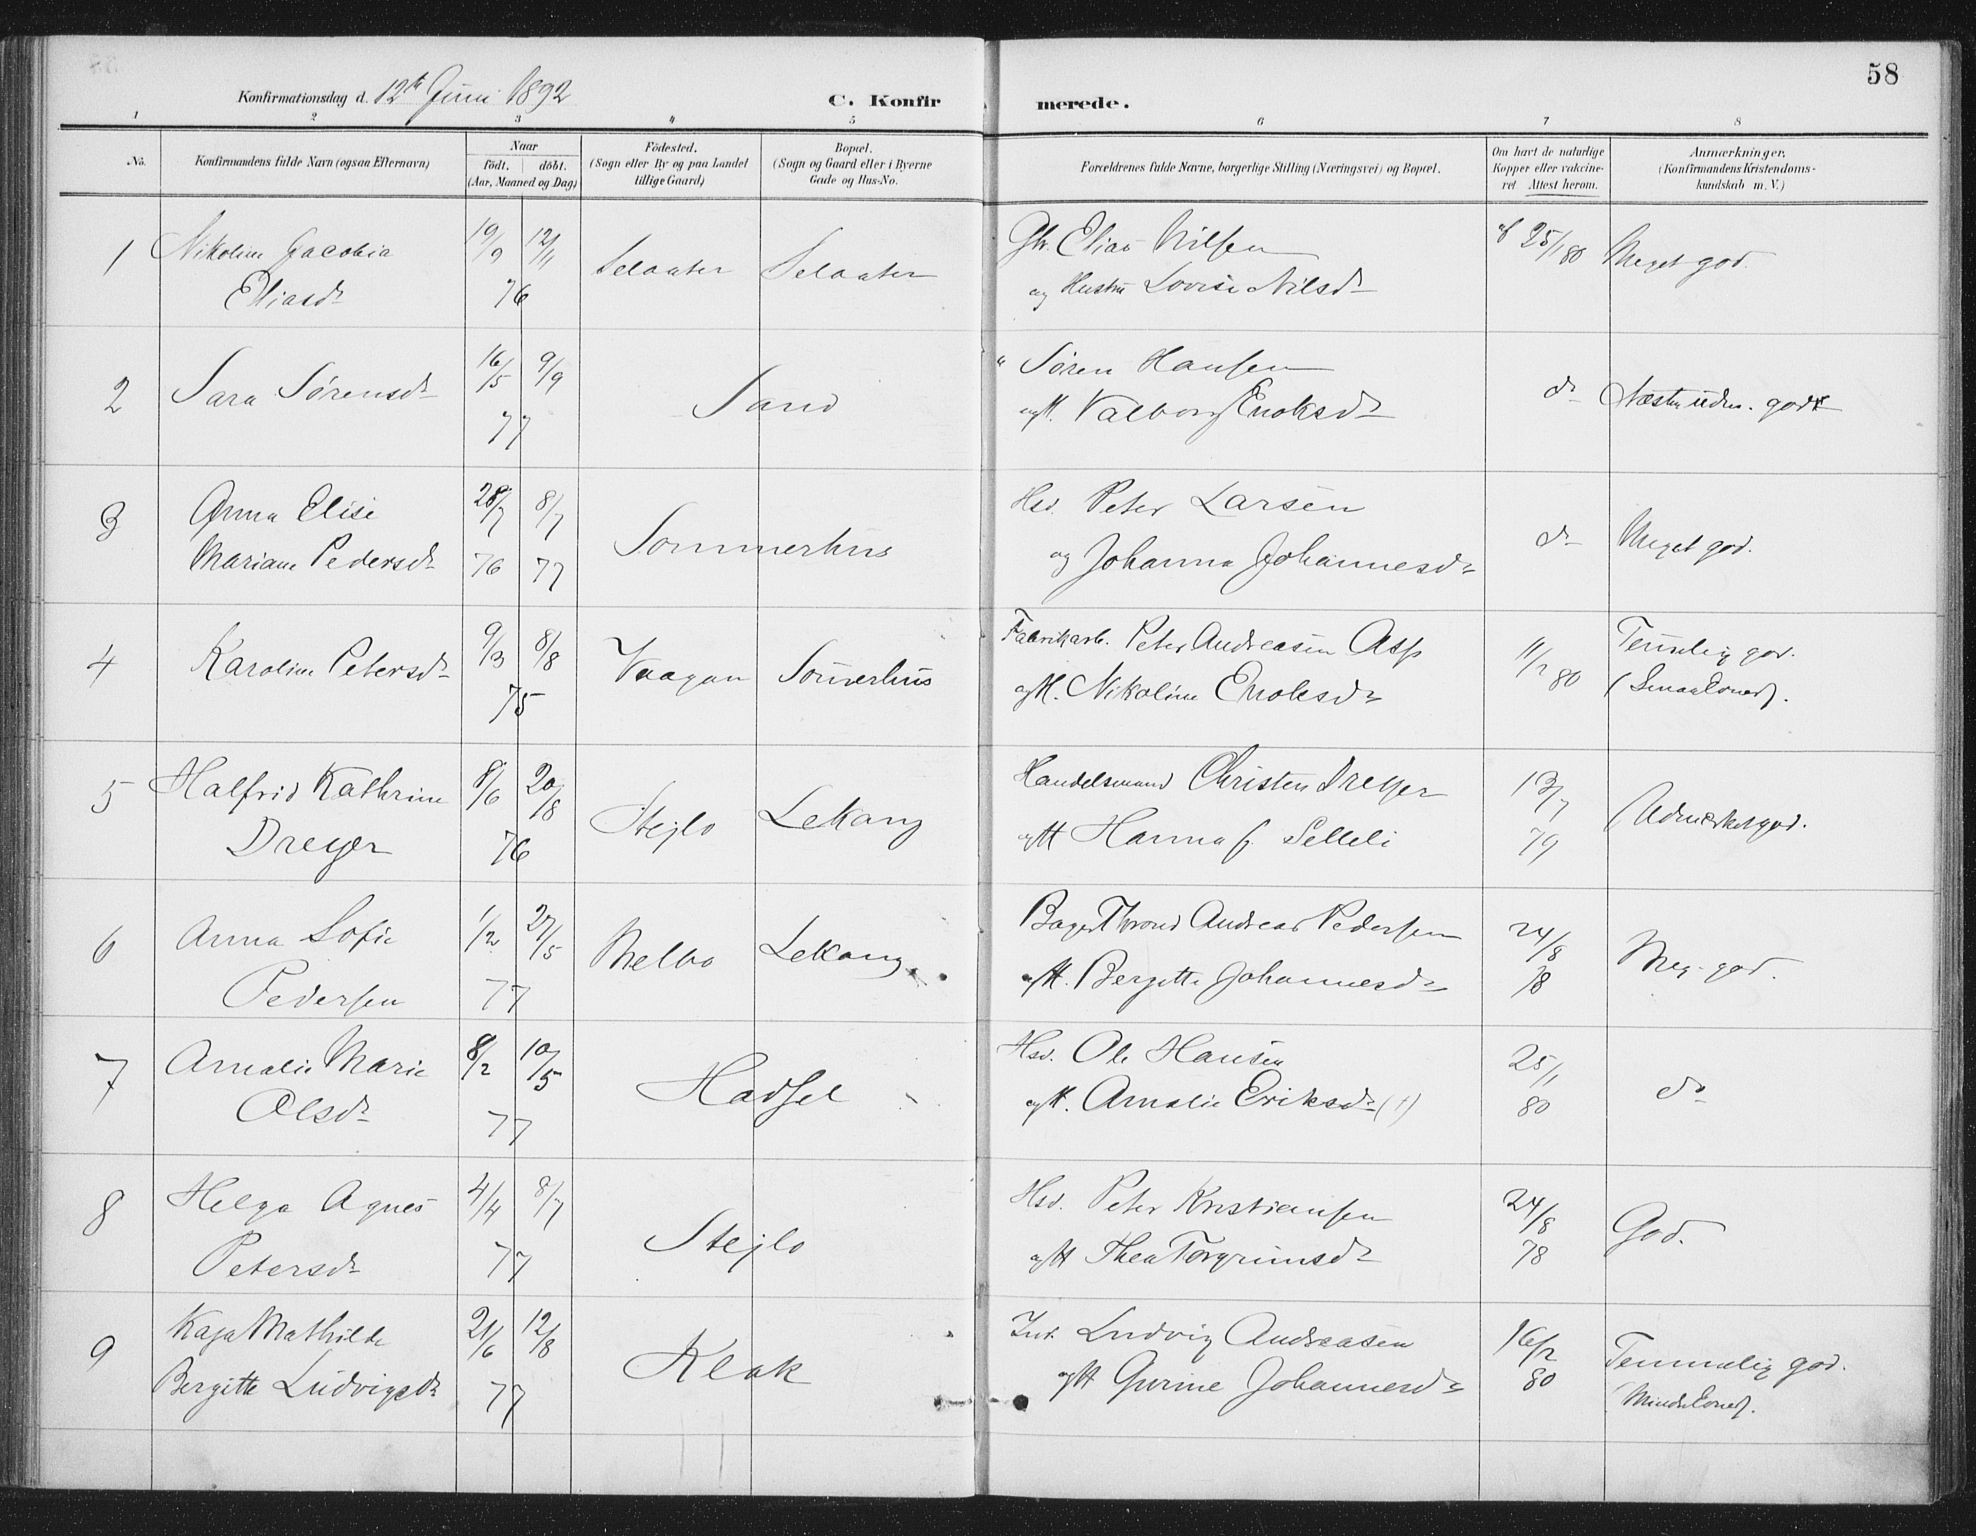 58
Konfirmationsdag d. 12te Juni 1892
C. Konfirmerede.
1 2 3 4 5 6 7 8
No.
Konfirmandens fulde Navn (ogsaa Efternavn)
Naar
födt. döbt.
(Aar, Maaned og Dag)
Födested.
(Sogn eller By og paa Landet
tillige Gaard)
Bopæl.
(Sogn og Gaard eller i Byerne
Gade og Hus-No.
Forældrenes fulde Navne, borgerlige Stilling (Næringsvei) og Bopæl.
Om havt de naturlige
Kopper eller vakcine-
ret Attest herom.
Anmærkninger,
(Konfirmandens Kristendoms-
kundskab m. V.)
1 Nikoline Jacobia 19/9 12/11 Selaater Selaater Gbr. Elias Nilsen 25/1 80 Meget god.
Eliasdr 76 og Hustru Lovise Nilsdr
2 Sara Sørensdr 16/5 9/9 Sand " Søren Hansen dr Næsten udm. godt
77 og H. Valborg Enoksdr
3 Anna Elise 28/7 8/7 Sommerhus Hsd. Peter Larsen dr Meget god.
Mariane Pedersdr 76 77 og Johanna Johannesdr
4 Karoline Petersdr 9/3 8/8 Vaagan Sommerhus Fabrikarb. Peter Andreasen Asp 11/2 80 Temmelig god.
75 og H. Nikoline Enoksdr (Smaa Evner).
5 Halfrid Kathrine 8/6 20/8 Stejlo Lekang Handelsmand Christen Dreyer 13/7 Udmerket god.
Dreyer 76 og H Hanna f. Selleli 79
6 Anna Sofie 1/2 27/5 Melbo Lekang Bager Thrond Andreas Pedersen 24/8 Meg. god.
Pedersen 77 og H. Bergitte Johannesdr 78
7 Amalie Marie 8/2 10/5 Hadsel Hsd. Ole Hansen 25/1 do
Olsdr 77 og H. Amalie Eriksdr (†) 80
8 Helga Agnes 4/4 8/7 Stejlo Hsd. Peter Kristiansen 24/8 God.
Petersdr 77 og H Thea Torgrimsdr 78
9 Kaja Mathilde 21/6 12/8 Kleak Ind. Ludvig Andreasen 16/2 Temmelig god.
Bergitte Ludvigsdr 77 og H Gurine Johannesdr 80 (Mindre Evner).